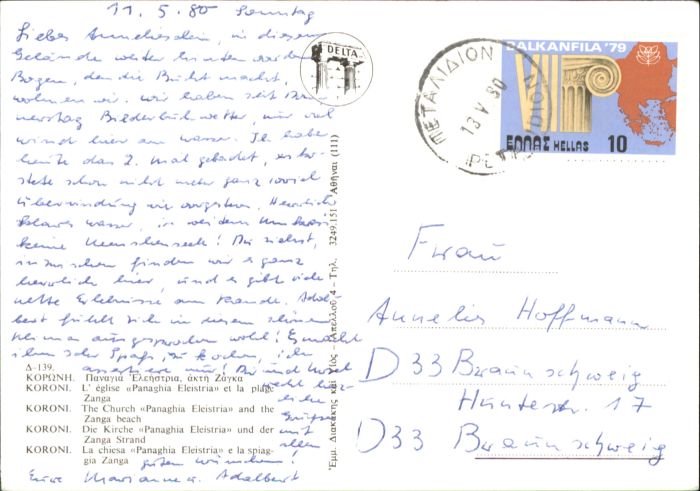 11.5.80 Sonntag
Liebes Annelieschen, in diesem
Gelände weiter hinten wo der
Bogen, den die Bucht macht,
wohnen wir. Wir haben seit Don-
nerstag Bilderbuchwetter, nur viel
Wind hier am Wasser. Ich habe
heute das 2. Mal gebadet, es ko-
stete schon nicht mehr ganz soviel
Überwindung wie vorgestern. Herrlich
blaues Wasser, in weitem Umkreis
keine Menschenseele! Du siehst,
inzwischen finden wir es ganz
herrlich hier, und es gibt viele
nette Erlebnisse am Rande. Adal-
bert fühlt sich in diesem
Klima ausgesprochen wohl! Es macht
ihm Spaß, zu kochen, ich
assistiere nur! Dir und
recht herz-
liche
Grüße
mit
allen
guten Wünschen!
Eure Marianne u. Adalbert
Δ-139.
ΚΟΡΩΝΗ. Παναγία Ἐλεήστρια, ἀκτή Ζάγκα
KORONI. L' église «Panaghia Eleistria» et la plage
Zanga
KORONI. The Church «Panaghia Eleistria» and the
Zanga beach
KORONI. Die Kirche «Panaghia Eleistria» und der
Zanga Strand
KORONI. La chiesa «Panaghia Eleistria» e la spiag-
gia Zanga
DELTA
Ἐμμ. Διακάκης καί Υἱός - (Ἀπελλοῦ 4 - Τηλ. 3249.151 Ἀθῆναι (111)
ΠΕΤΑΛΙΔΙΟΝ
13 V 80
BALKANFILA '79
ΕΛΛΑΣ HELLAS 10
Frau
Annelies Hoffmann
D 33 Braunschweig
Hünterstr. 17
D 33 Braunschweig